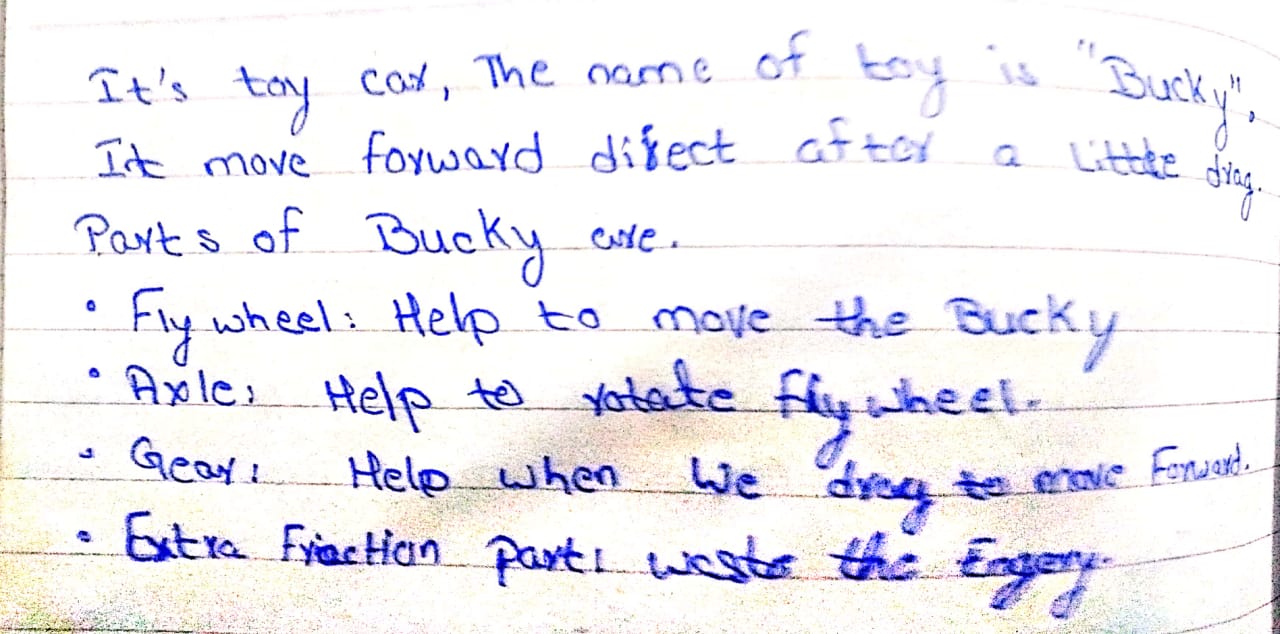 It's toy car, The name of toy is "Bucky".
It move forward direct after a little drag.
Parts of Bucky are.
• Fly wheel: Help to move the Bucky
• Axle: Help to rotate fly wheel.
• Gear: Help when we drag to move Forward.
• Extra Friaction part: waste the Engery.